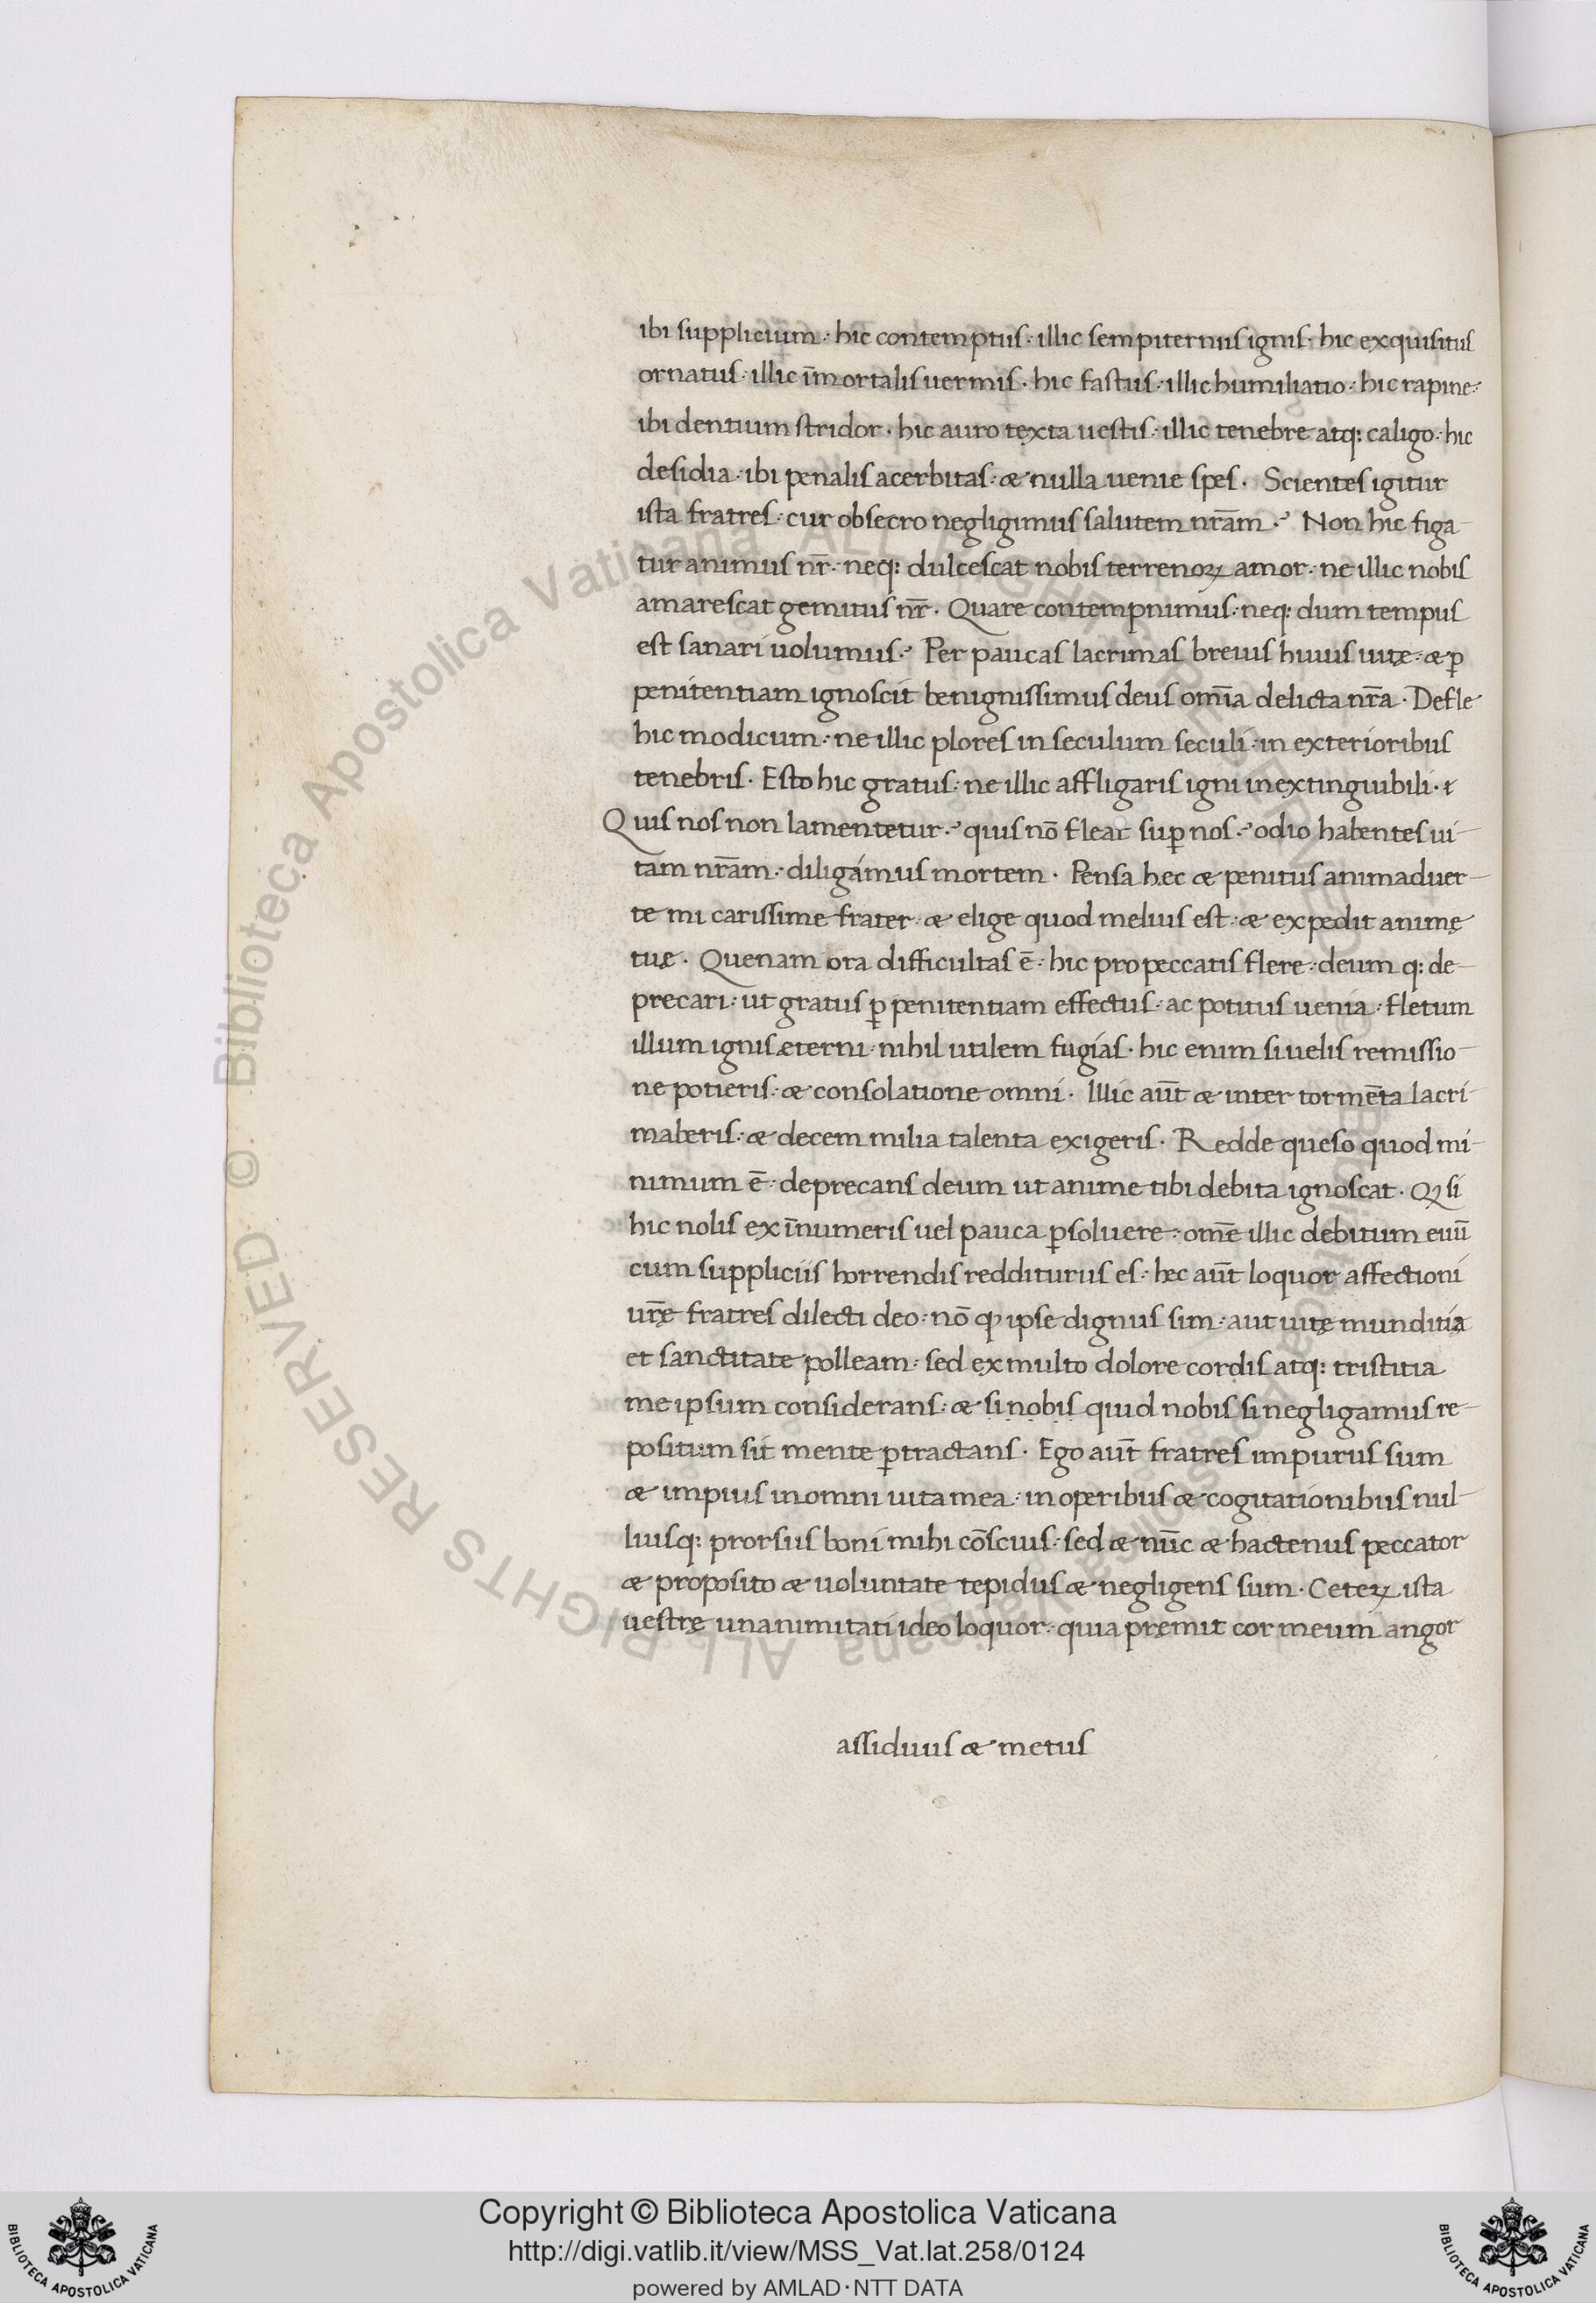 ibi supplicium·: hic contemptus·: illic sempiternus ignis· hic exquisitus
ornatus·: illic im̄ortalis uermis· hic fastus·: illic humiliatio·: hic rapine·:
ibi dentium stridor· hic auro texta uestis·: illic tenebre atq: caligo·: hic
desidia·: ibi penalis acerbitas·: & nulla uenie spes· Scientes igitur
ista fratres·: cur obsecro negligimus salutem nr̄am? Non hic figa-
tur animus nr̄·: neq: dulcescat nobis terrenoꝝ amor·: ne illic nobis
amarescat gemitus nr̄· Quare contempnimus·: neq: dum tempus
est sanari uolumus? Per paucas lacrimas breuis huius uitę·: & ꝑ
penitentiam ignoscit benignissimus deus om̄ia delicta nr̄a· Defle
hic modicum·: ne illic plores in seculum seculi·: in exterioribus
tenebris· Esto hic gratus·: ne illic affligaris igni inextinguibili· &
Quis nos non lamentetur? quis nō fleat suꝑ nos? odio habentes ui-
tam nr̄am·: diligamus mortem· Pensa hec & penitus animaduer-
te mi carissime frater·: & elige quod melius est·: & expedit animę
tuę· Quenam ora difficultas ē·: hic pro peccatis flere·: deum q: de-
precari·: ut gratus ꝑ penitentiam effectus·: ac potitus uenia·: fletum
illum ignis æterni·: nihil utilem fugias· hic enim si uelis remissio-
ne potieris·: & consolatione omni· Illic aūt & inter tormēta lacri-
maberis·: & decem milia talenta exigeris· Redde queso quod mi-
nimum ē·: deprecans deum ut anime tibi debita ignoscat· Qꝫ si
hic nolis ex īnumeris uel pauca ꝑsoluere·: om̄e illic debitum euū
cum suppliciis horrendis redditurus es·: hęc aūt loquor affectioni
ur̄ę fratres dilecti deo·: nō ꝙ ipse dignus sim·: aut uitę munditia
et sanctitate polleam·: sed ex multo dolore cordis atq: tristitia
me ipsum considerans·: & si nobis quid nobis si negligamus re-
positum sit mente ꝑtractans· Ego aūt fratres impurus sum
& impius in omni uita mea·: in operibus & cogitationibus nul-
liusq: prorsus boni mihi cōscius·: sed & nūc & hactenus peccator
& proposito & uoluntate tepidus & negligens sum· Ceteꝝ ista
uestrę unanimitati ideo loquor·: quia premit cor meum angor
assiduus & metus
© Biblioteca Apostolica Vaticana ALL RIGHTS RESERVED
Copyright © Biblioteca Apostolica Vaticana
http://digi.vatlib.it/view/MSS_Vat.lat.258/0124
powered by AMLAD·NTT DATA
BIBLIOTECA APOSTOLICA VATICANA
BIBLIOTECA APOSTOLICA VATICANA